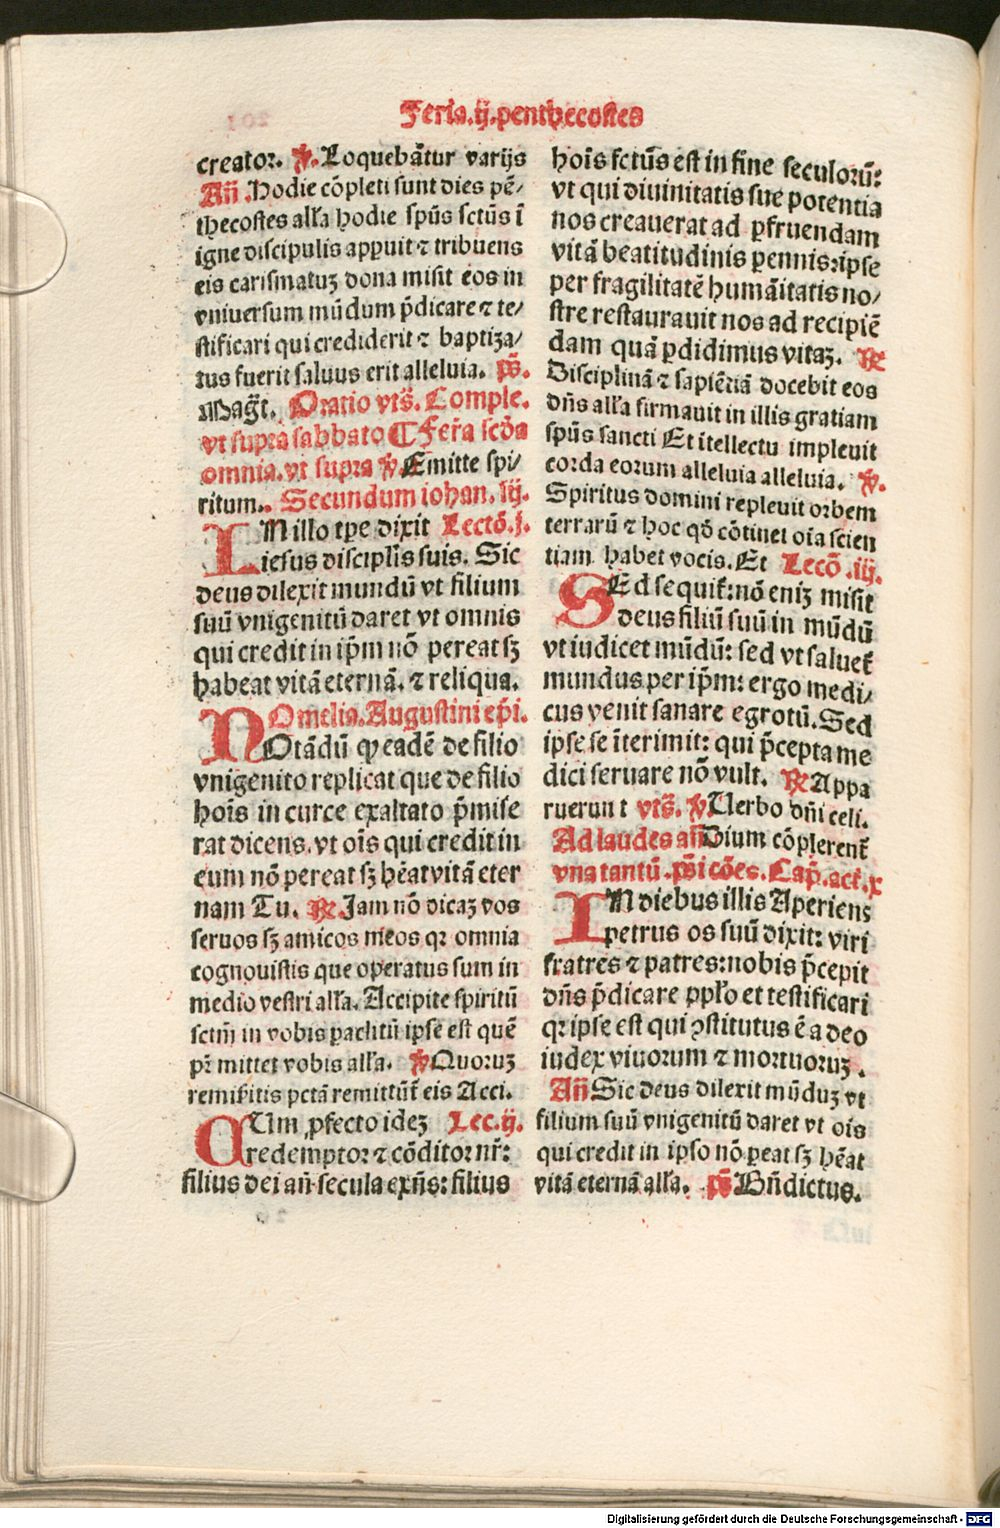 Feria.ij.penthecostes
creator. ℣. Loquebãtur varijs
Añ .Hodie cõpleti sunt dies pẽ/
thecostes alľa hodie spũs sctũs ĩ
igne discipulis apꝑuit ⁊ tribuens
eis carismatuꝫ dona misit eos in
vniuersum mũdum p̃dicare ⁊ te/
stificari qui crediderit ⁊ baptiza/
tus fuerit saluus erit alleluia. p̃s.
Mag̃t. Oratio vts̃. Comple.
vt supra sabbato ❡ Fer̃a scd̃a
omnia. vt supra ℣ Emitte spi/
ritum.. Secundum iohan. iij.
IN illo tꝑe dixit Lectõ.j.
iesus discipľis suis. Sic
deus dilexit mundũ vt filium
suũ vnigenitũ daret vt omnis
qui credit in ip̃m nõ pereat sꝫ
habeat vitã eternã. ⁊ reliqua.
Omelia. Augustini ep̃i.
NOtãdũ ꝙ eadẽ de filio
vnigenito replicat que de filio
hoĩs in curce exaltato p̃mise
rat dicens. vt oĩs qui credit in
eum nõ pereat sꝫ hẽat vitã eter
nam Tu. ℟. Jam nõ dicaꝫ vos
seruos sꝫ amicos meos qꝛ omnia
cognouistis que operatus sum in
medio vestri alľa. Accipite spiritũ
sctm̃ in vobis paclitũ ipse est quẽ
pr̃ mittet vobis alľa. ℣ Quoruꝫ
remiſitis pctã remittũt̃ eis Acci.
CUm ꝓfecto ideꝫ Lec.ij.
redemptor ⁊ cõditor nr̃:
filius dei añ secula exñs: filius
hoĩs fctũs est in fine seculorũ:
vt qui diuinitatis sue potentia
nos creauerat ad ꝑfruendam
vitã beatitudinis ꝑennis: ipse
per fragilitatẽ humãitatis no/
stre restaurauit nos ad recipiẽ
dam quã ꝑdidimus vitaꝫ. ℟
Disciplinã ⁊ sapiẽtiã docebit eos
dñs alľa firmauit in illis gratiam
spũs sancti Et itellectu impleuit
corda eorum alleluia alleluia. ℣.
Spiritus domini repleuit orbem
terrarũ ⁊ hoc qõ cõtinet oĩa scien
tiam habet vocis. Et Lecõ .iij.
SEd sequit̃: nõ eniꝫ misit
deus filiũ suũ in mũdũ
vt iudicet mũdũ: sed vt saluet̃
mundus per ip̃m: ergo medi/
cus venit sanare egrotũ. Sed
ipse se ĩterimit: qui p̃cepta me
dici seruare nõ vult. ℟ Appa
ruerunt vts̃. ℣. Uerbo dñi celi.
Ad laudes añ Dium cõplerent̃
vna tantũ. p̃s̃i cões. Cap̃. act̃.x
IN diebus illis Aperiens
petrus os suũ dixit: viri
fratres ⁊ patres: nobis p̃cepit
dñs p̃dicare ppľo et testificari
qꝛ ipse est qui ꝯstitutus ẽ a deo
iudex viuorum ⁊ mortuoruꝫ .
Añ Sic deus dilexit mũduꝫ vt
filium suũ vnigenitũ daret vt oĩs
qui credit in ipso nõ ꝑeat sꝫ hẽat
vitã eternã alľa. p̃s Bñdictus.
Digitalisierung gefördert durch die Deutsche Forschungsgemeinschaft - DFG